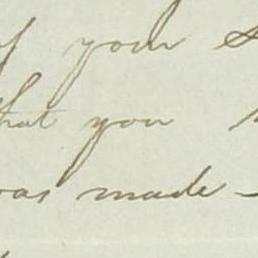 of your
that you
was made -